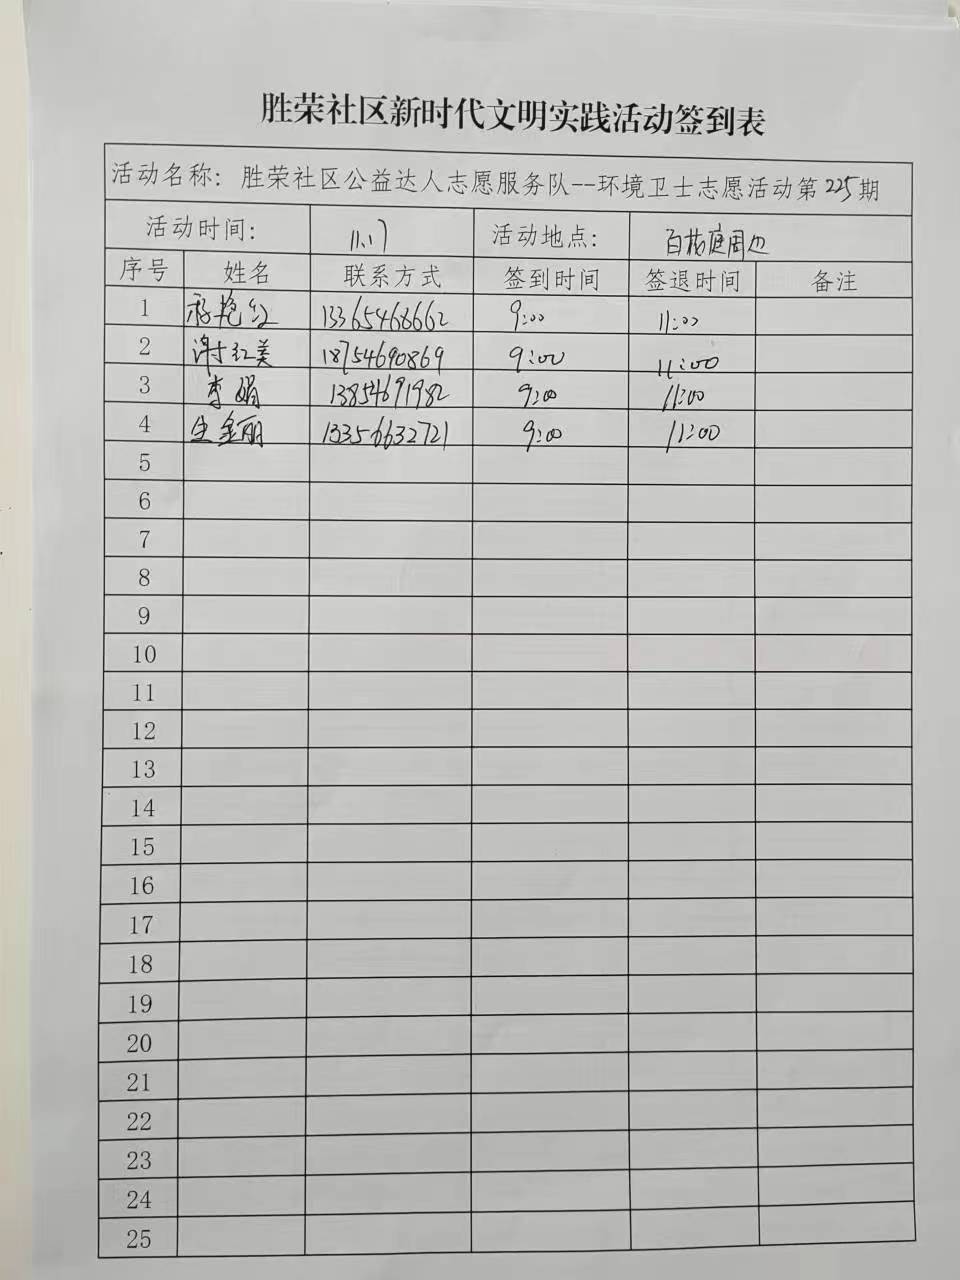 胜荣社区新时代文明实践活动签到表
活动名称：胜荣社区公益达人志愿服务队--环境卫士志愿活动第225期
活动时间： 11.17 活动地点： 百格庭周边
序号 姓名 联系方式 签到时间 签退时间 备注
1 艳红 13365468662 9:00 11:00
2 谢红美 18754690869 9:00 11:00
3 李娟 13854691982 9:00 11:00
4 生金丽 13356632721 9:00 11:00
5
6
7
8
9
10
11
12
13
14
15
16
17
18
19
20
21
22
23
24
25